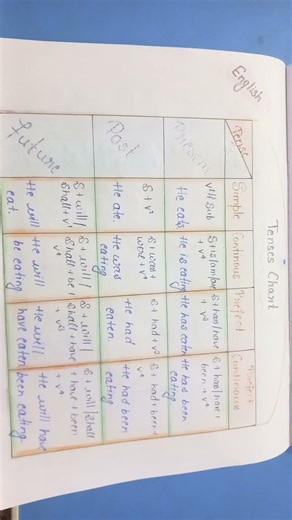 English
Tenses Chart
Tense
Simple
Continuous
Perfect
Perfect
Continuous
Present
S + is/am/are
+ v⁴
S + has/have
+ v³
S + has/have +
been + v⁴
He eats.
He is eating
He has eaten
He has been
eating
Past
S + v²
S + was +
were + v⁴
S + had + v³
S + had + been +
v⁴
He ate.
He was
eating
He had
eaten.
He had been
eating
Future
S + will /
Shall + v¹
S + will /
Shall + be +
v⁴
S + will /
Shall + have
+ v³
S + will / Shall
+ have + been
+ v⁴
He will
eat.
He will
be eating
He will
have eaten
He will have
been eating.